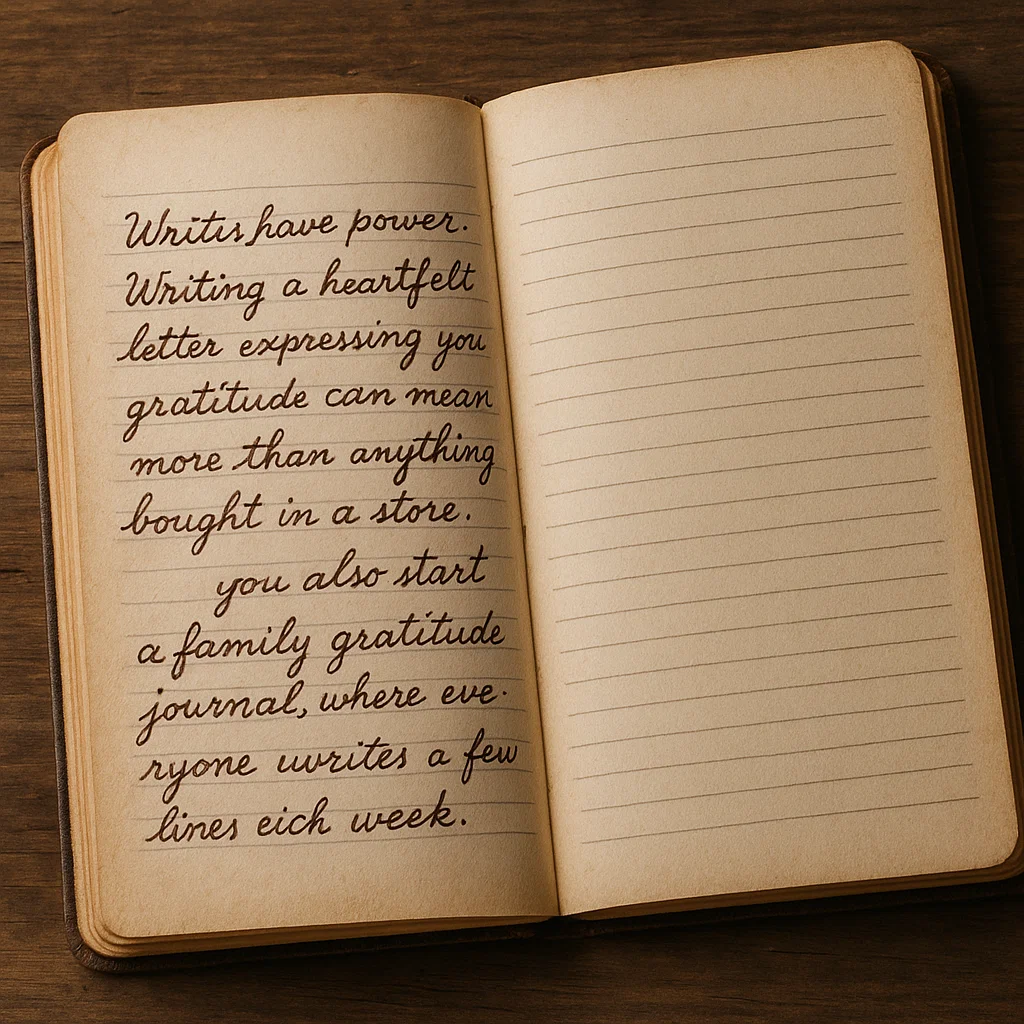 Writis have power.
Writing a heartfelt
letter expressing you
gratitude can mean
more than anything
bought in a store.
you also start
a family gratitude
journal, where eve-
ryone uwrites a few
lines eich week.